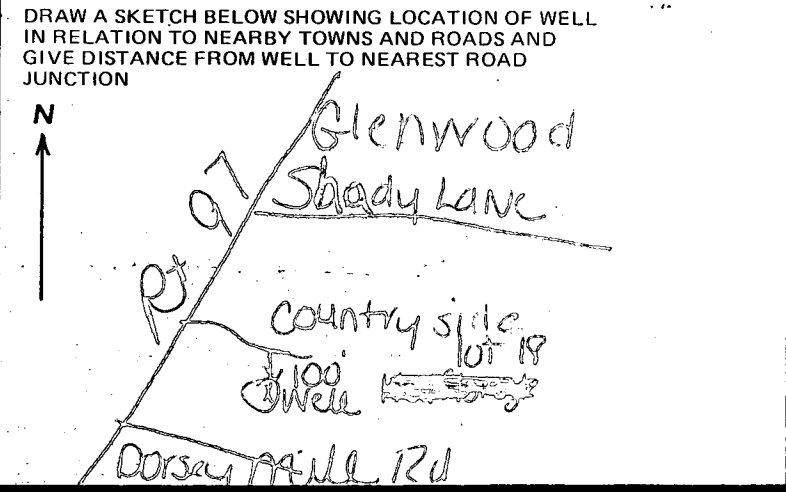 DRAW A SKETCH BELOW SHOWING LOCATION OF WELL
IN RELATION TO NEARBY TOWNS AND ROADS AND
GIVE DISTANCE FROM WELL TO NEAREST ROAD
JUNCTION
N
Glenwood
Shady Lane
Rt 97
Country side
lot 18
100'
Well
Dorsey Mill Rd